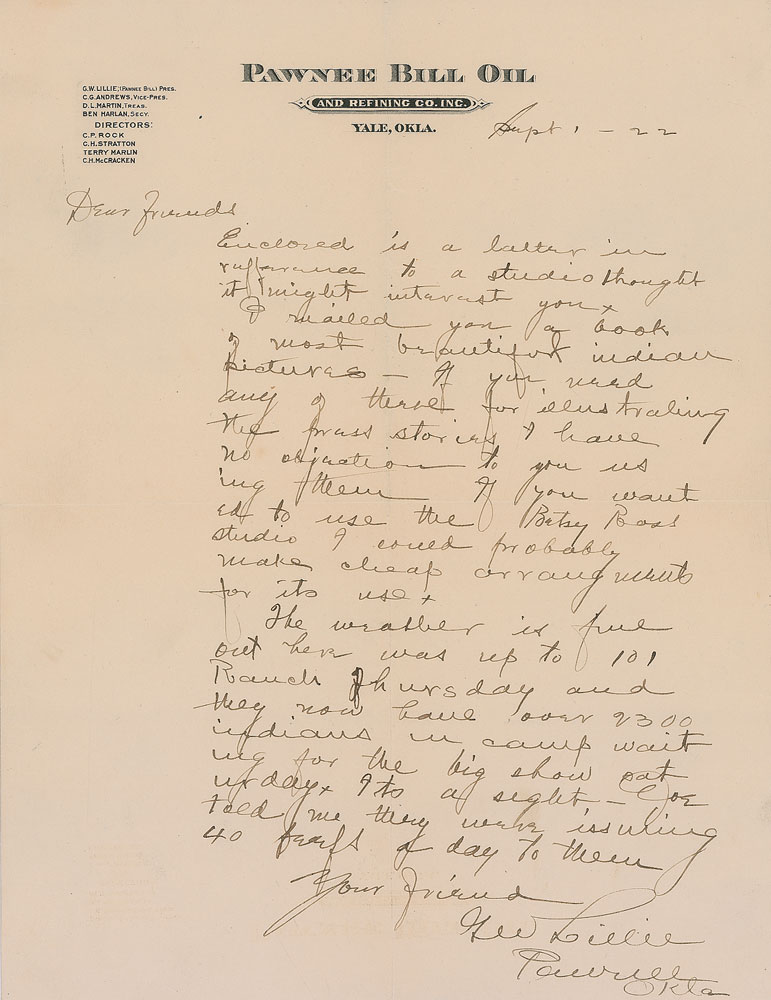 PAWNEE BILL OIL
AND REFINING CO. INC.
YALE, OKLA.
G.W. LILLIE, (PAWNEE BILL) PRES.
C.G. ANDREWS, VICE-PRES.
D.L. MARTIN, TREAS.
BEN HARLAN, SECY.
DIRECTORS:
C.P. ROCK
C.H. STRATTON
TERRY MARLIN
C.H. McCRACKEN
Sept 1 - 22
Dear friends
Enclosed is a letter in
refferance to a studio thought
it might interest you x
I mailed you a book
of most beautiful indian
pictures — If you need
any of these for illustrating
the press stories I have
no objection to you us
ing them If you want
ed to use the Betsy Ross
studio I could probably
make cheap arrangments
for its use x
The weather is fine
out here was up to 101
Ranch Thursday and
they now have over 2300
indians in camp wait
ing for the big show sat
urday x Its a sight — Joe
told me they were issuing
40 beefs a day to them
Your friend
Geo Lillie
Pawnee
Okla